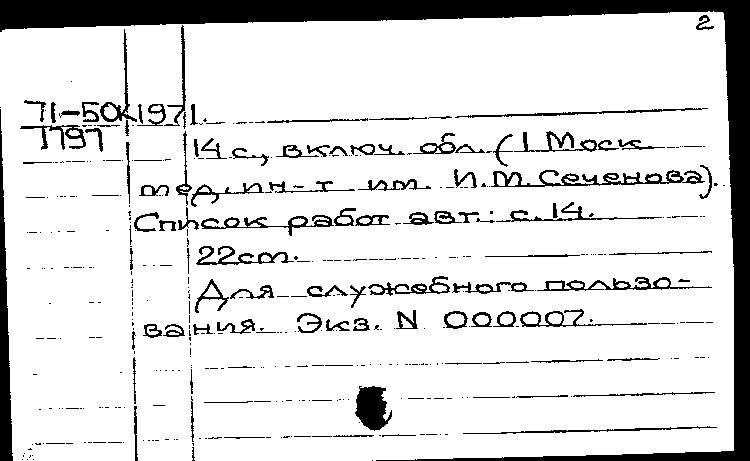 2
71-50к 1971.
1797
14 с., включ. обл. (I Моск.
мед. ин-т им. И.М. Сеченова).
Список работ авт.: с. 14.
22cm.
Для служебного пользо-
вания. Экз. N 000007.